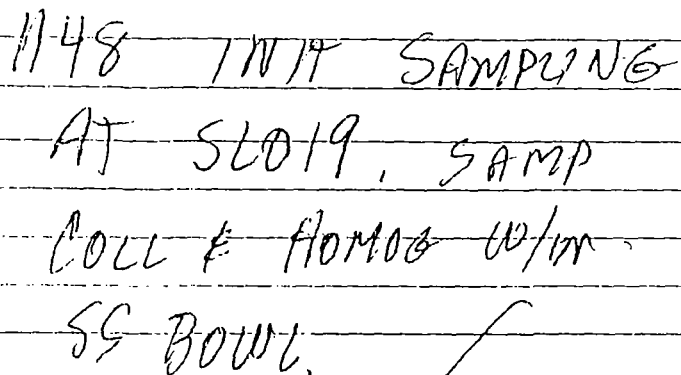 1148 INIT SAMPLING
AT SLO19. SAMP
COLL & HOMOG W/IN
SS BOWL.